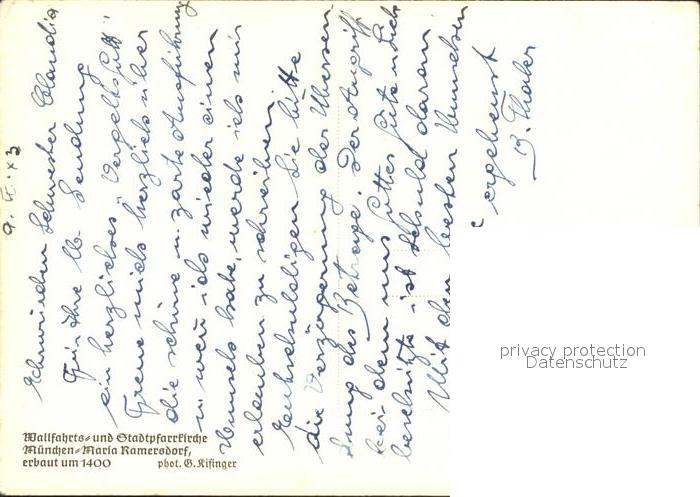 9. VI. 43
Ehrwürden Schwester Claudia
Für Ihre lb. Sendung
ein herzliches "Vergelts Gott".
Freue mich herzlich über
die schöne u. zarte Ausführung
u. wen ich wieder einen
Wunsch habe, werde ich mir
erlauben zu schreiben.
Entschuldigen Sie bitte
die Verzögerung der Übersen-
dung des Betrags. Der Angriff
bei dem uns Gottes Güte
beschützte ist schuld daran.
Mit den besten Wünschen
ergebenst
Thaler
Wallfahrts- und Stadtpfarrkirche
München-Maria Ramersdorf,
erbaut um 1400
phot. G. Kifinger
privacy protection
Datenschutz